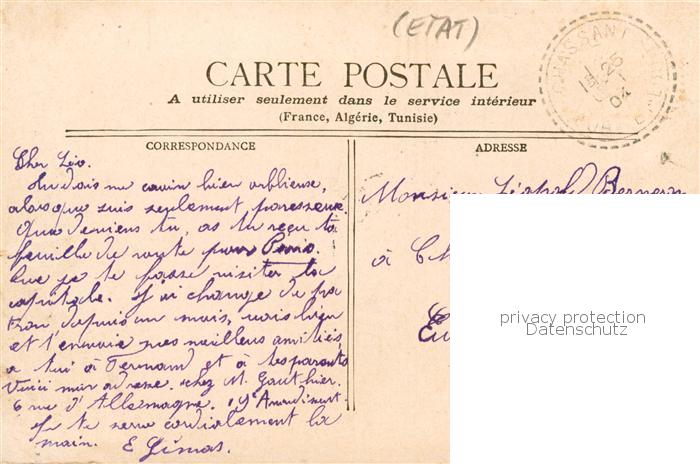 (ETAT)
CARTE POSTALE
A utiliser seulement dans le service intérieur
(France, Algérie, Tunisie)
CORRESPONDANCE
ADRESSE
Cher Léo.
Tu dois me croire bien oublieuse,
alors que suis seulement paresseux.
Que deviens tu, as tu reçu ta
feuille de route pour Paris.
Que je te fasse visiter la
capitale. J'ai changé de pa
tron depuis un mois, vais bien
et t'envoie mes meilleurs amitiés
a toi à Fernand et à tes parents
Voici mon adresse. chez M. Gauthier.
6 rue d'Allemagne. 19e Arrondiment.
Je te serre cordialement la
main. E
Monsieur Léopol
à Ch
Eu
privacy protection
Datenschutz